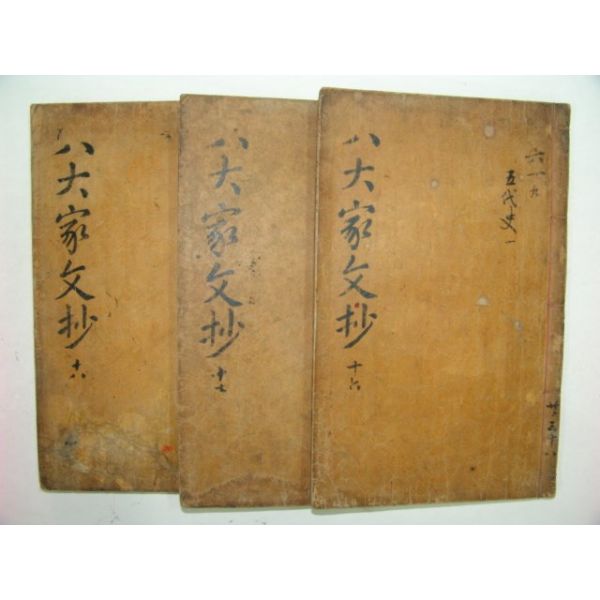 八大家文抄
十六
六一九
五代史一
共五十八
八大家文抄
十七
八大家文抄
十八